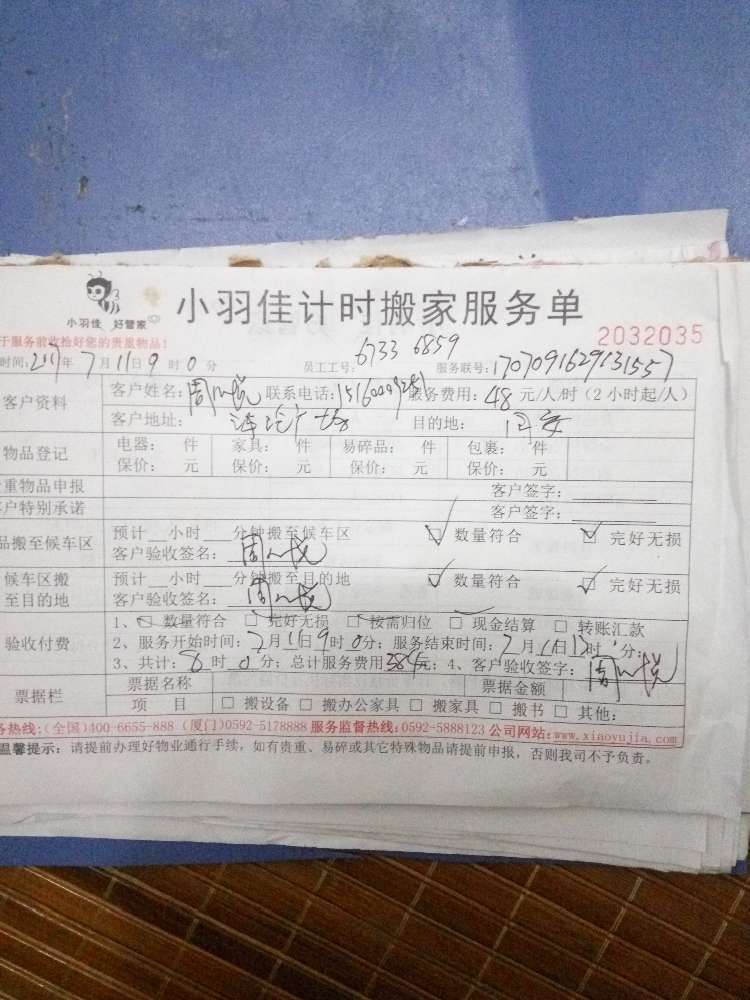 小羽佳 好管家
小羽佳计时搬家服务单
2032035
于服务前收拾好您的贵重物品!
时间: 2017年 7月 11日 9时 0分 员工工号: 6733 6859 服务联号: 1707091629131557
客户资料 客户姓名: 周 悦 联系电话: 服务费用: 48 元/人/时(2小时起/人)
客户地址: 目的地: 同安
物品登记 电器: 件 家具: 件 易碎品: 件 包裹: 件
保价: 元 保价: 元 保价: 元 保价: 元
重物品申报 客户签字:
户特别承诺 客户签字:
品搬至候车区 预计 小时 分钟搬至候车区 ☑ 数量符合 ☑ 完好无损
客户验收签名: 周 悦
候车区搬 预计 小时 分钟搬至目的地 ☑ 数量符合 ☑ 完好无损
至目的地 客户验收签名: 周 悦
验收付费 1、☑ 数量符合 □ 完好无损 □ 按需归位 □ 现金结算 □ 转账汇款
2、服务开始时间: 7月 11日 9时 0分; 服务结束时间: 7月 11日 时 分;
3、共计: 8时 0分; 总计服务费用 384元; 4、客户验收签字: 周 悦
票据栏 票据名称 票据金额
项 目 □ 搬设备 □ 搬办公家具 □ 搬家具 □ 搬书 □ 其他:
务热线:(全国)400-6655-888 (厦门)0592-5178888 服务监督热线:0592-5888123 公司网站:www.xiaoyujia.com
温馨提示: 请提前办理好物业通行手续, 如有贵重、易碎或其它特殊物品请提前申报, 否则我司不予负责。